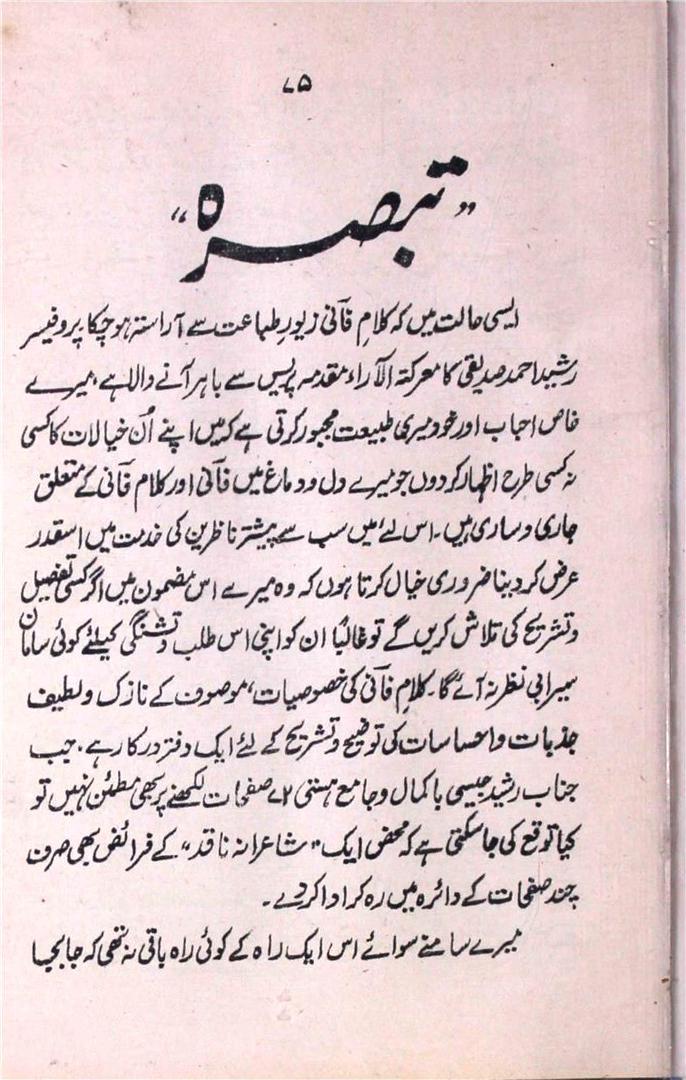 ۷۵
"تبصرہ"
ایسی حالت میں کہ کلامِ فانی زیورِ طباعت سے آراستہ ہو چکا۔ پروفیسر
رشید احمد صدیقی کا معرکۃ الآراء مقدمہ پریس سے باہر آنے والا ہے، میرے
خاص احباب اور خود میری طبیعت مجبور کرتی ہے کہ میں اپنے اُن خیالات کا کسی
نہ کسی طرح اظہار کر دوں جو میرے دل و دماغ میں فانی اور کلام فانی کے متعلق
جاری و ساری ہیں۔ اس لئے میں سب سے پیشتر ناظرین کی خدمت میں اسقدر
عرض کر دینا ضروری خیال کرتا ہوں کہ وہ میرے اس مضمون میں اگر کسی تفصیل
و تشریح کی تلاش کریں گے تو غالباً ان کو اپنی اس طلب و تشنگی کیلئے کوئی سامان
سیرابی نظر نہ آئے گا۔ کلامِ فانی کی خصوصیات، موصوف کے نازک و لطیف
جذبات و احساسات کی توضیح و تشریح کے لئے ایک دفتر درکار ہے، جب
جناب رشید جیسی باکمال و جامع ہستی ۷۲ صفحات لکھنے پر بھی مطمئن نہیں تو
کیا توقع کی جا سکتی ہے کہ محض ایک "شاعرانہ ناقد" کے فرائض بھی صرف
چند صفحات کے دائرہ میں رہ کر ادا کر دے۔
میرے سامنے سوائے اس ایک راہ کے کوئی راہ باقی نہ تھی کہ جابجا